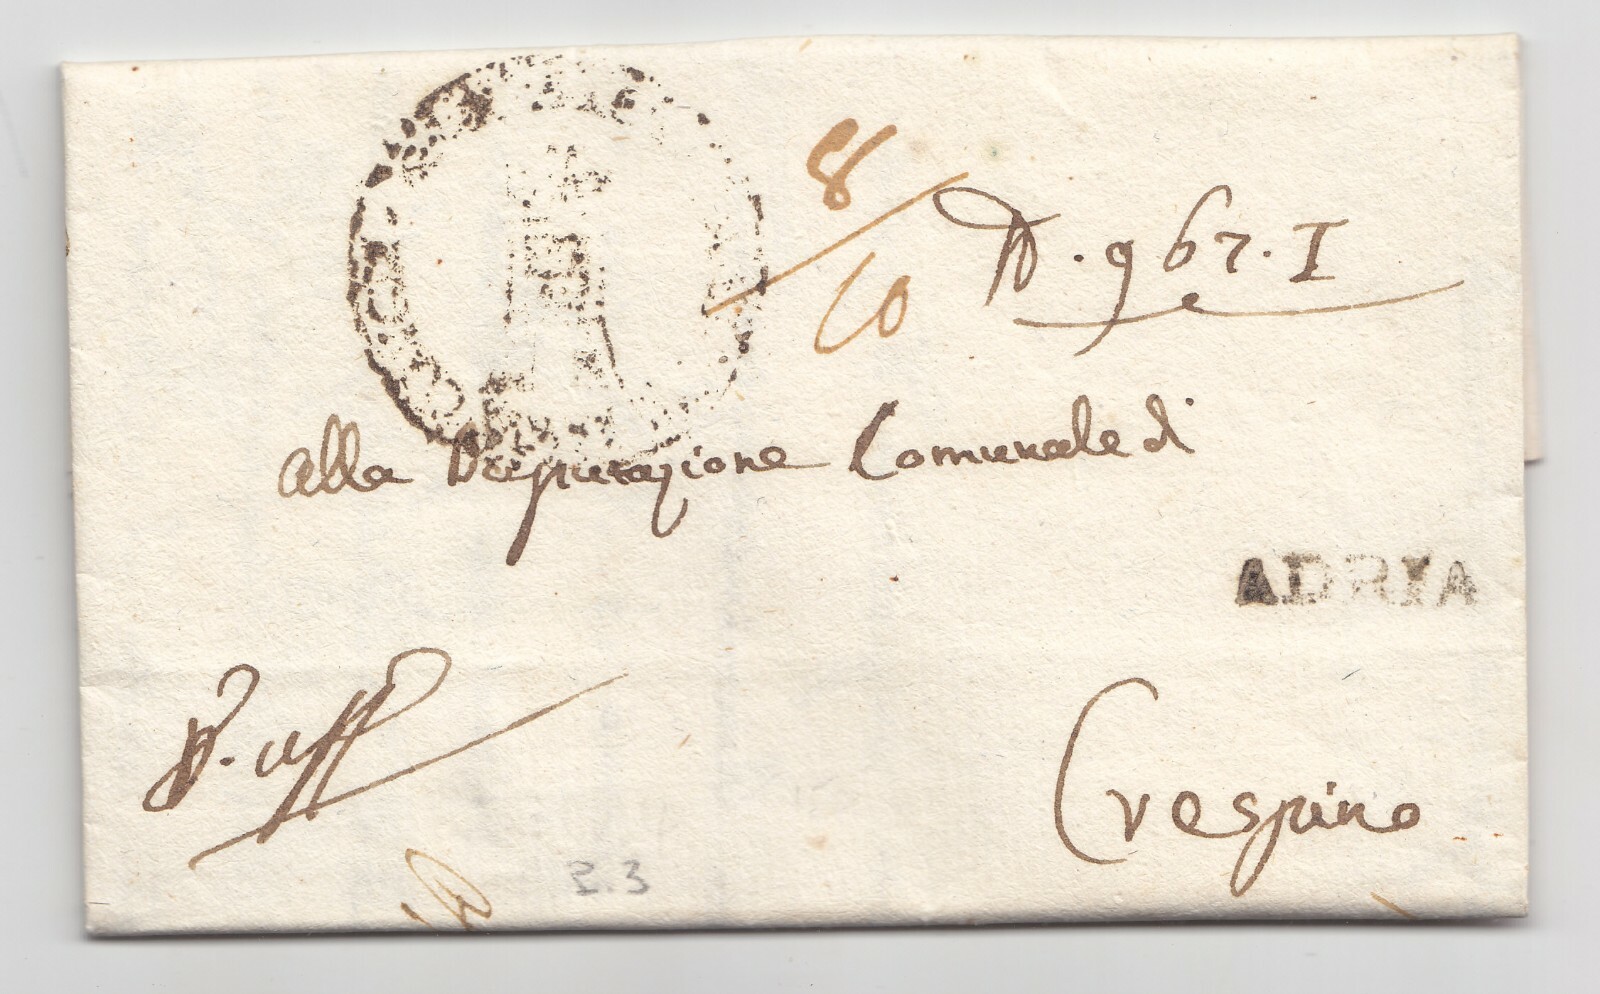 8/10
N. 967. I
Alla Deputazione Comunale di
ADRIA
Crespino
P. 3